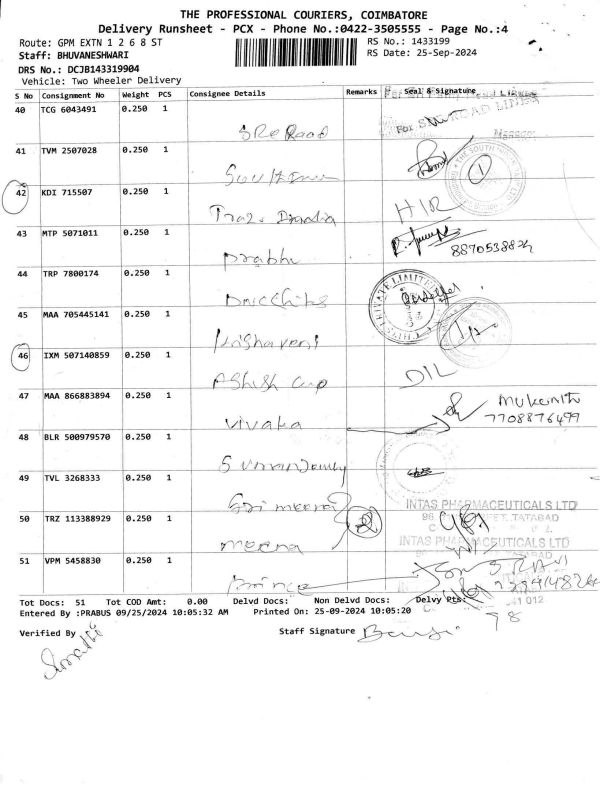 THE PROFESSIONAL COURIERS, COIMBATORE
Delivery Runsheet - PCX - Phone No.:0422-3505555 - Page No.:4
Route: GPM EXTN 1 2 6 8 ST
RS No.: 1433199
Staff: BHUVANESHWARI
RS Date: 25-Sep-2024
DRS No.: DCJB143319904
Vehicle: Two Wheeler Delivery
S No Consignment No Weight PCS Consignee Details Remarks Seal & Signature
40 TCG 6043491 0.250 1
For
Manager
41 TVM 2507028 0.250 1
THE SOUTH
1
42 KDI 715507 0.250 1
HIR
43 MTP 5071011 0.250 1
prabhu
8870538824
44 TRP 7800174 0.250 1
PRIVATE LIMITED
45 MAA 705445141 0.250 1
Krishaveni
46 IXM 507140859 0.250 1
Ashish cup
DIL
47 MAA 866883894 0.250 1
vivaka
7708876499
48 BLR 500979570 0.250 1
49 TVL 3268333 0.250 1
Sri meera
INTAS PHARMACEUTICALS LTD
50 TRZ 113388929 0.250 1
TATABAD
meena
INTAS PHARMACEUTICALS LTD
51 VPM 5458830 0.250 1
TATABAD
prince
Tot Docs: 51 Tot COD Amt: 0.00 Delvd Docs: Non Delvd Docs: Delvy Pts:
641 012
Entered By :PRABUS 09/25/2024 10:05:32 AM Printed On: 25-09-2024 10:05:20
98
Verified By Staff Signature